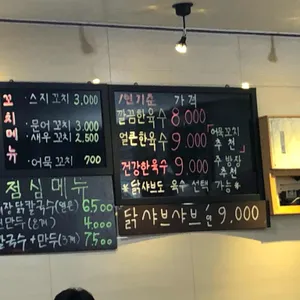 꼬치메뉴
·스지 꼬치 3,000
·문어 꼬치 3,000
·새우 꼬치 2,500
·어묵 꼬치 700
점심메뉴
닭칼국수(얼큰) 6,500
4,000
칼국수+만두(3개) 7,500
1인기준 가격
깔끔한육수 8,000
얼큰한육수 9,000
건강한육수 9,000
어묵꼬치 추천
주방장 추천
*닭샤브도 육수 선택 가능*
닭 샤브샤브 1인 9,000